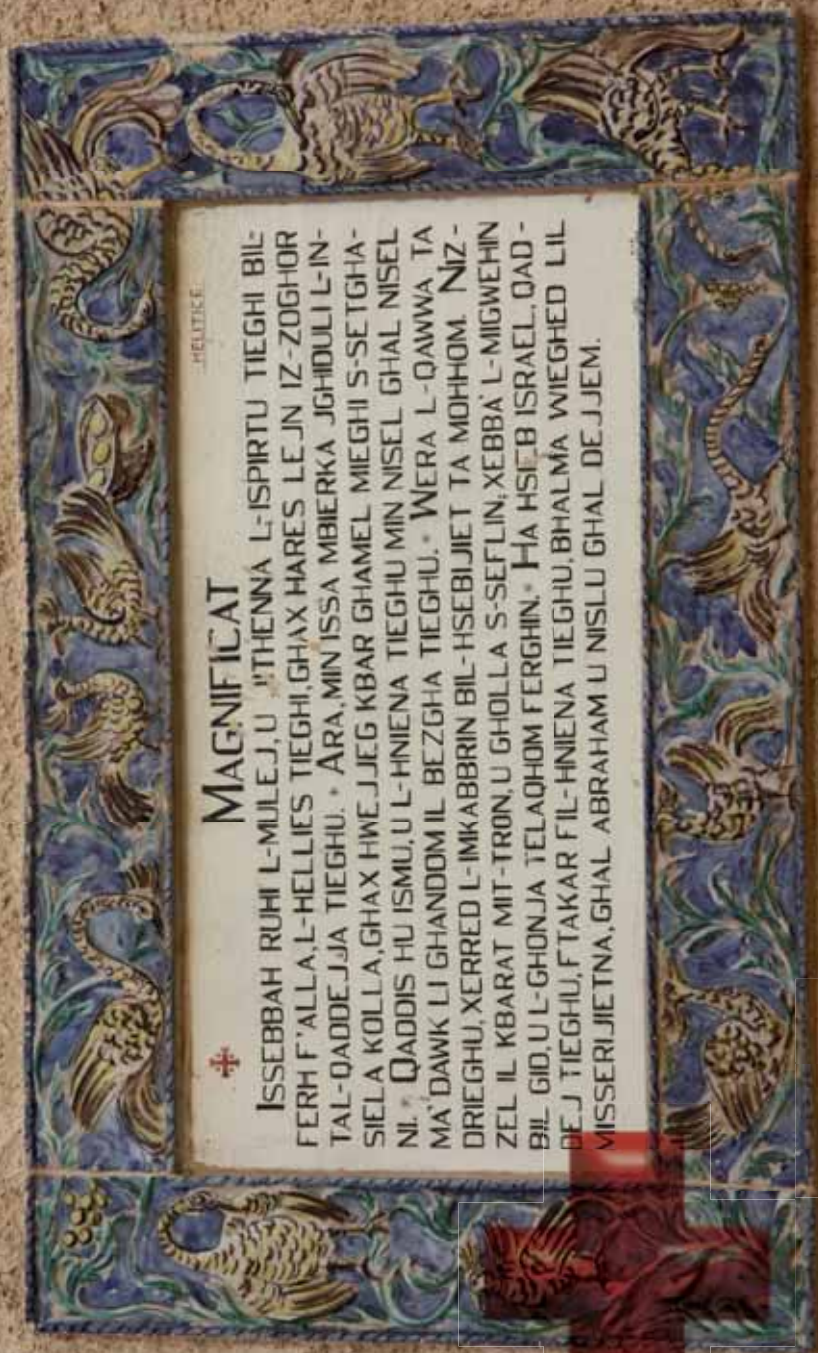 MELITICE
MAGNIFICAT
ISSEBBAH RUHI L-MULEJ, U JITHENNA L-ISPIRTU TIEGHI BIL-
FERH F'ALLA, L-HELLIES TIEGHI, GHAX HARES LEJN IZ-ZOGHOR
TAL-QADDEJJA TIEGHU. * ARA, MIN ISSA MBIERKA JGHIDULI L-IN-
SIELA KOLLA, GHAX HWEJJEG KBAR GHAMEL MIEGHI S-SETGHA-
NI. * QADDIS HU ISMU, U L-HNIENA TIEGHU MIN NISEL GHAL NISEL
MA' DAWK LI GHANDOM IL BEZGHA TIEGHU. * WERA L-QAWWA TA
DRIEGHU, XERRED L-IMKABBRIN BIL-HSEBIJIET TA MOHHOM. NIZ-
ZEL IL KBARAT MIT-TRON, U GHOLLA S-SEFLIN, XEBBA' L-MIGWEHIN
BIL GID, U L-GHONJA TELAQHOM FERGHIN. * HA HSIEB ISRAEL, QAD-
DEJ TIEGHU, FTAKAR FIL-HNIENA TIEGHU, BHALMA WIEGHED LIL
MISSERIJIETNA, GHAL ABRAHAM U NISLU GHAL DEJJEM.